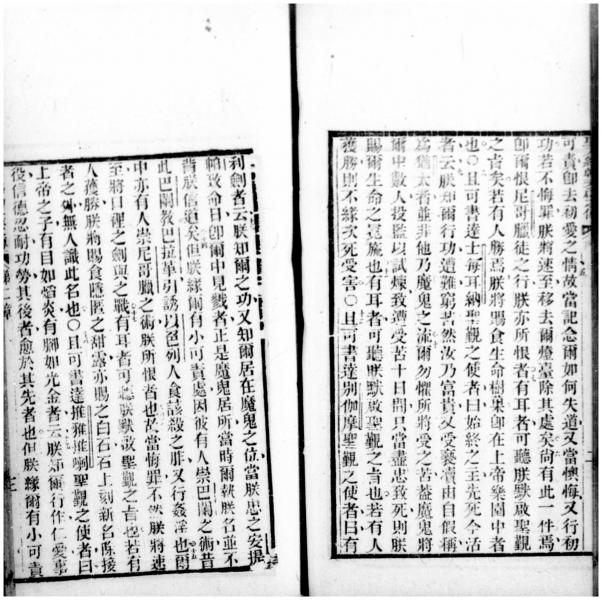 可責卽去初愛之情故當記念爾如何失道又當懊悔又行初
功若不悔罪朕將速至移去爾燈臺除其處矣尚有此一件焉
卽爾恨尼哥臘徒之行朕亦所恨者有耳者可聽朕默啟聖觀
之言矣若有人勝焉朕將賜食生命樹菓卽在上帝樂園中者
也〇且可書達士每耳納聖觀之使者曰始終之主先死今活
者云朕知爾行功遭難窮苦然汝乃富貴又受褻瀆由自假稱
爲猶太者並非他乃魔鬼之流爾勿懼所將受之苦蓋魔鬼將
爾中數人投監以試煉致遭受苦十日間只當盡忠致死則朕
賜爾生命之冕旒也有耳者可聽朕默啟聖觀之言也若有人
獲勝則不緣次死受害〇且可書達別伽摩聖觀之使者曰有
利劍者云朕知爾之功又知爾居在魔鬼之位當朕忠之安提
帕致命日卽爾中見戮者正是魔鬼居所當時爾執朕名並不
背朕信道矣但朕緣爾有小可責處因彼有人崇巴闌之術昔
此巴闌教巴拉華引誘以色列人食該殺之胙又行姦淫也爾
中亦有人崇尼哥臘之術朕所恨者也故當悔罪不然朕將速
至將口裡之劍與之戰有耳者可聽朕默啟聖觀之言也若有
人獲勝朕將賜食隱匿之甜露亦賜之白石石上刻新名除接
者之外無人識此名也〇且可書達推雅推喇聖觀之使者曰
上帝之子有目如焰炎有腳如光金者云朕知爾行作仁愛事
役信德忍耐功勞其後者愈於其先者也但朕緣爾有小可責